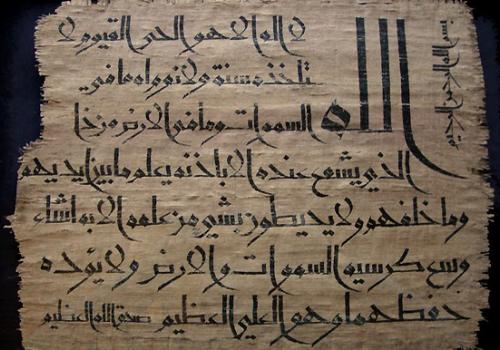 بسم الله الرحمن الرحيم
الله
لا اله الا هو الحى القيوم لا
تاخذه سنة ولا نوم له ما في
السموات وما في الارض من ذا
الذي يشفع عنده الا باذنه يعلم ما بين ايديهم
وما خلفهم ولا يحيطون بشيء من علمه الا بما شاء
وسع كرسيه السموات والارض ولا يؤده
حفظهما وهو العلي العظيم صدق الله العظيم